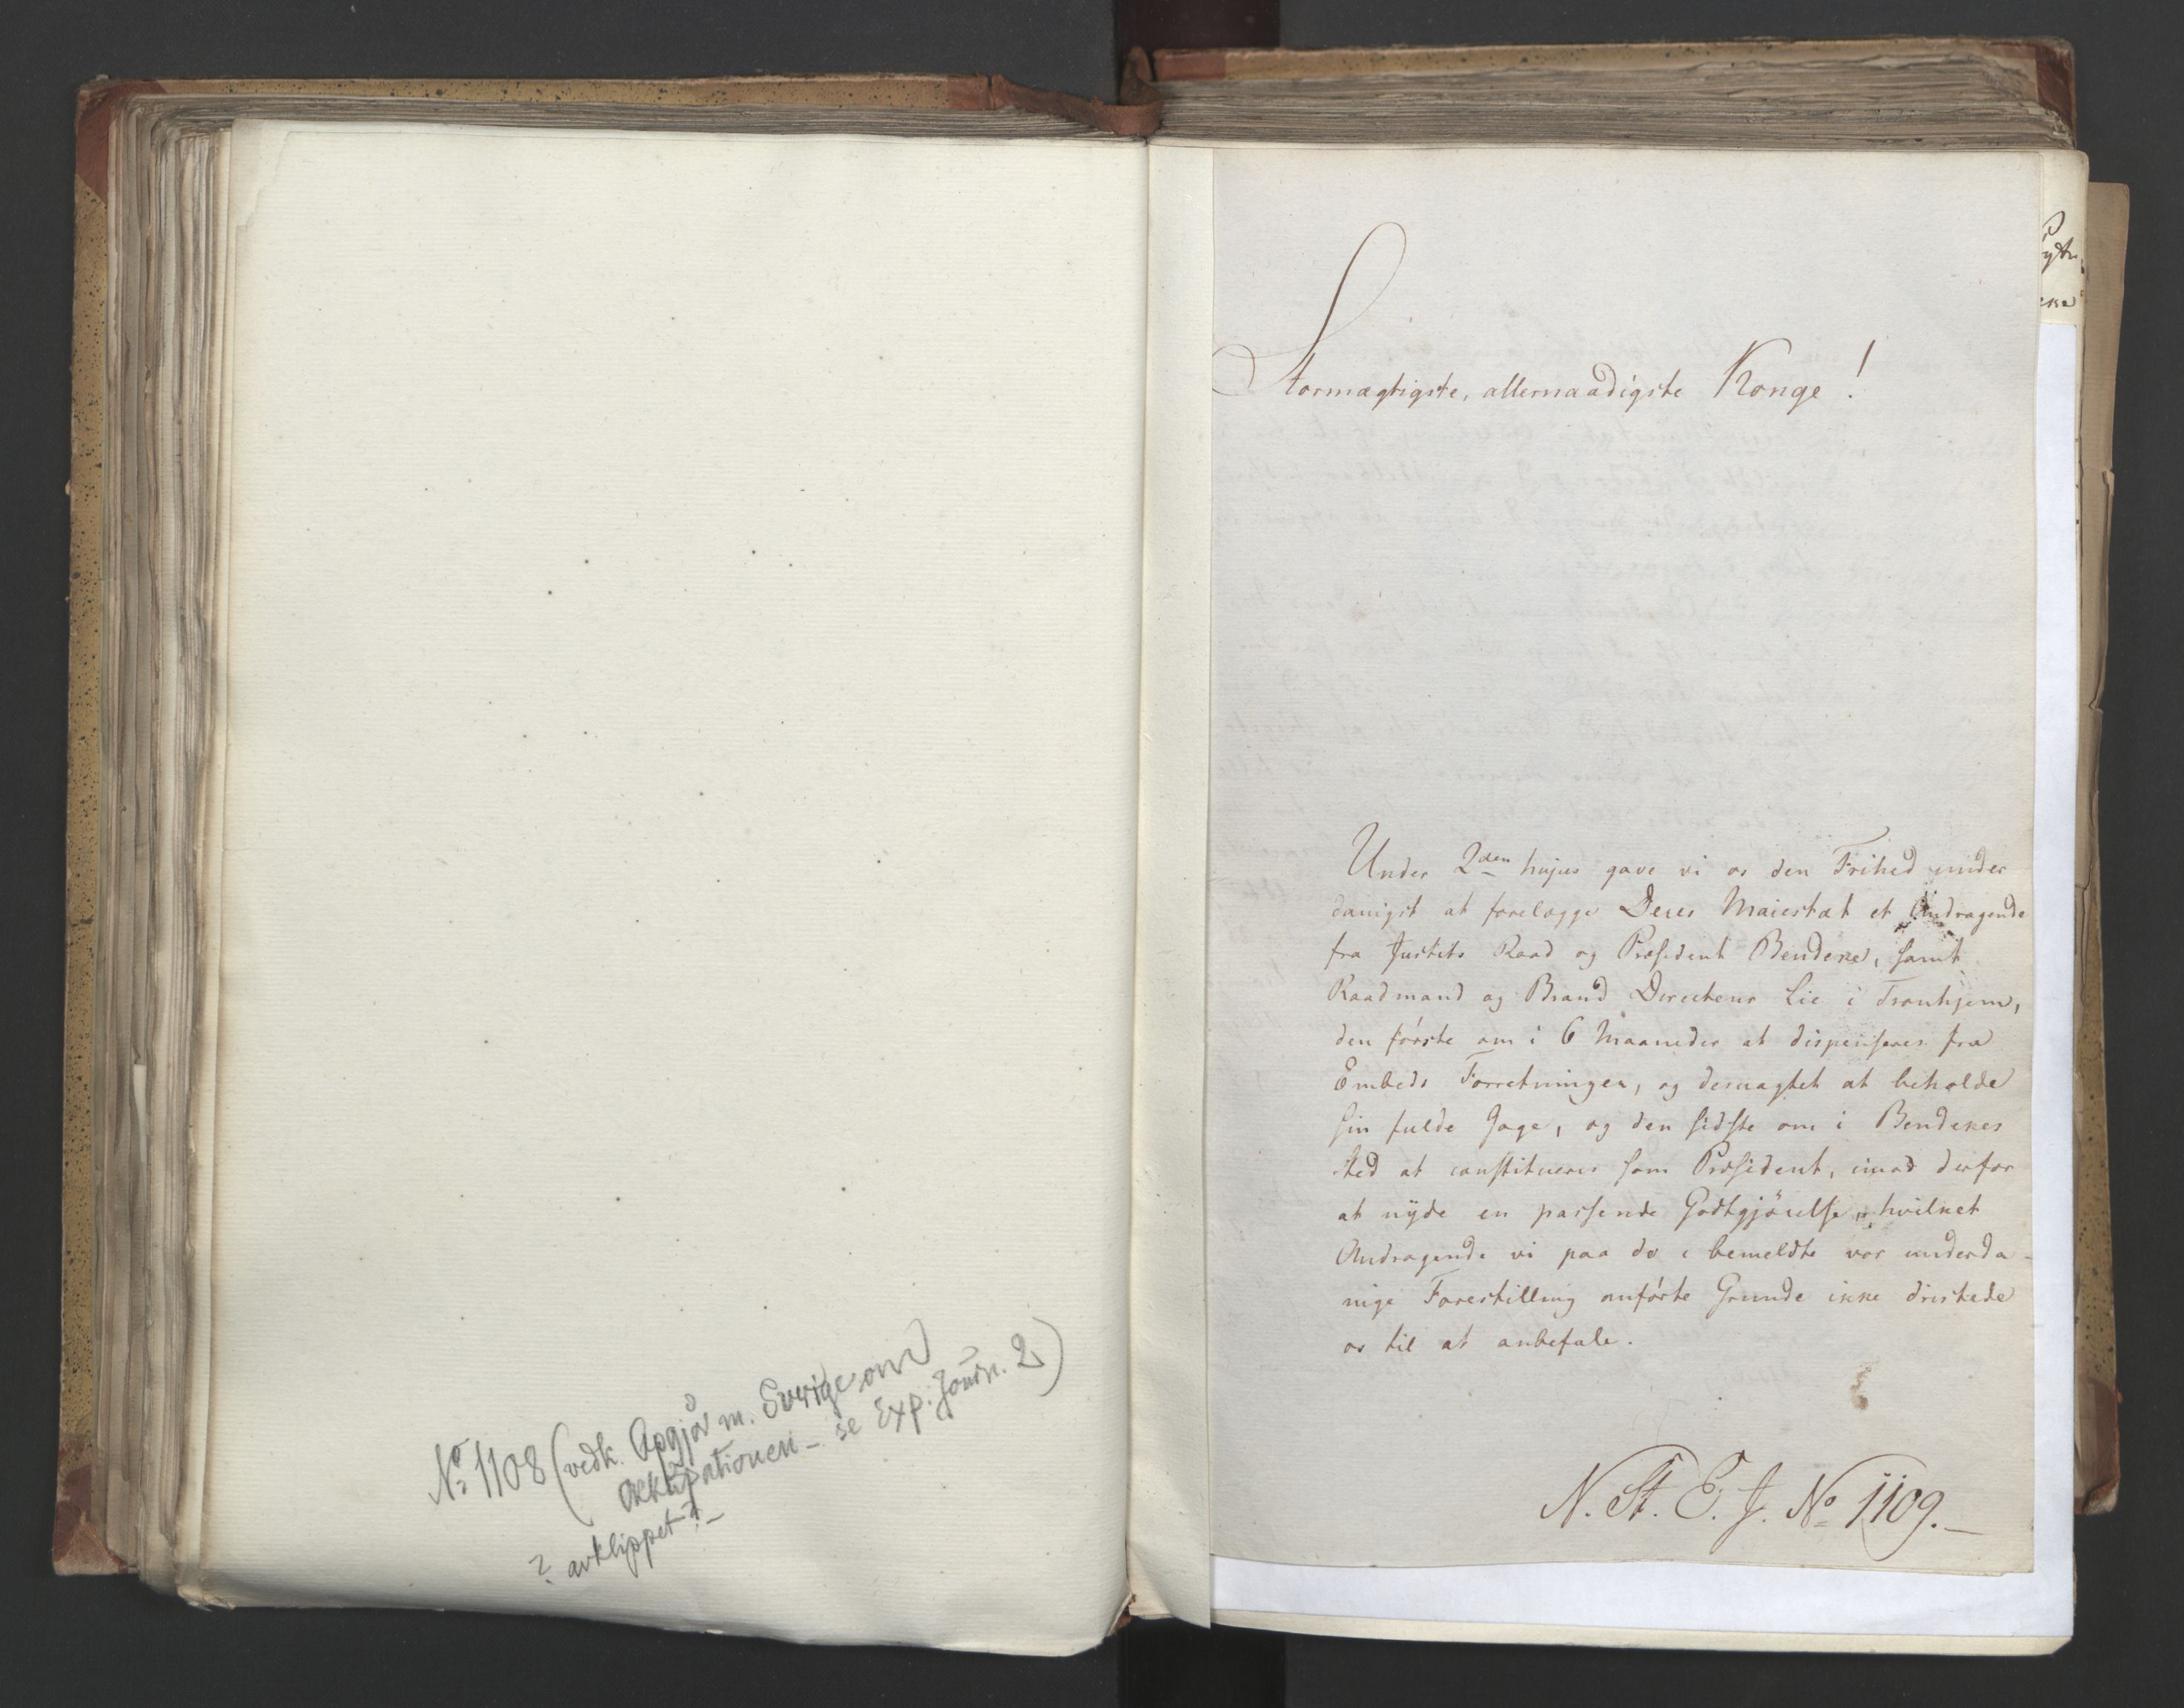 No 1108 (vedk. Opgjør m. Sverige om
Okkupationen – se Exp. Journ. 2)
? avklippet? –
Stormægtigste, allernaadigste Konge!
Under 2den hujus gave vi os den Frihed under
danigst at forelægge Deres Maiestæt et Andragende
fra Justits Raad og Præsident Bendeke, samt
Raadmand og Brand Directeur Lie i Tronhjem,
den første om i 6 Maaneder at dispenseres fra
Embeds Forretninger, og desuagtet at beholde
sin fulde Gage, og den sidste om i Bendekes
Sted at constitueres som Præsident, imod derfor
at nyde en passende Godtgjørelse, hvilket
Andragende vi paa de i bemeldte vor underda-
nige Forestilling anførte Grunde ikke dristede
os til at anbefale.
N. St. E. J. No 1109. –